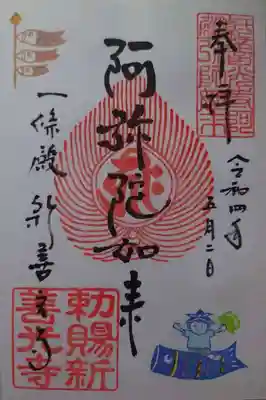 奉拝
令和四年
五月二日
阿弥陀如来
一條殿 新善光寺
勅賜新
善光寺